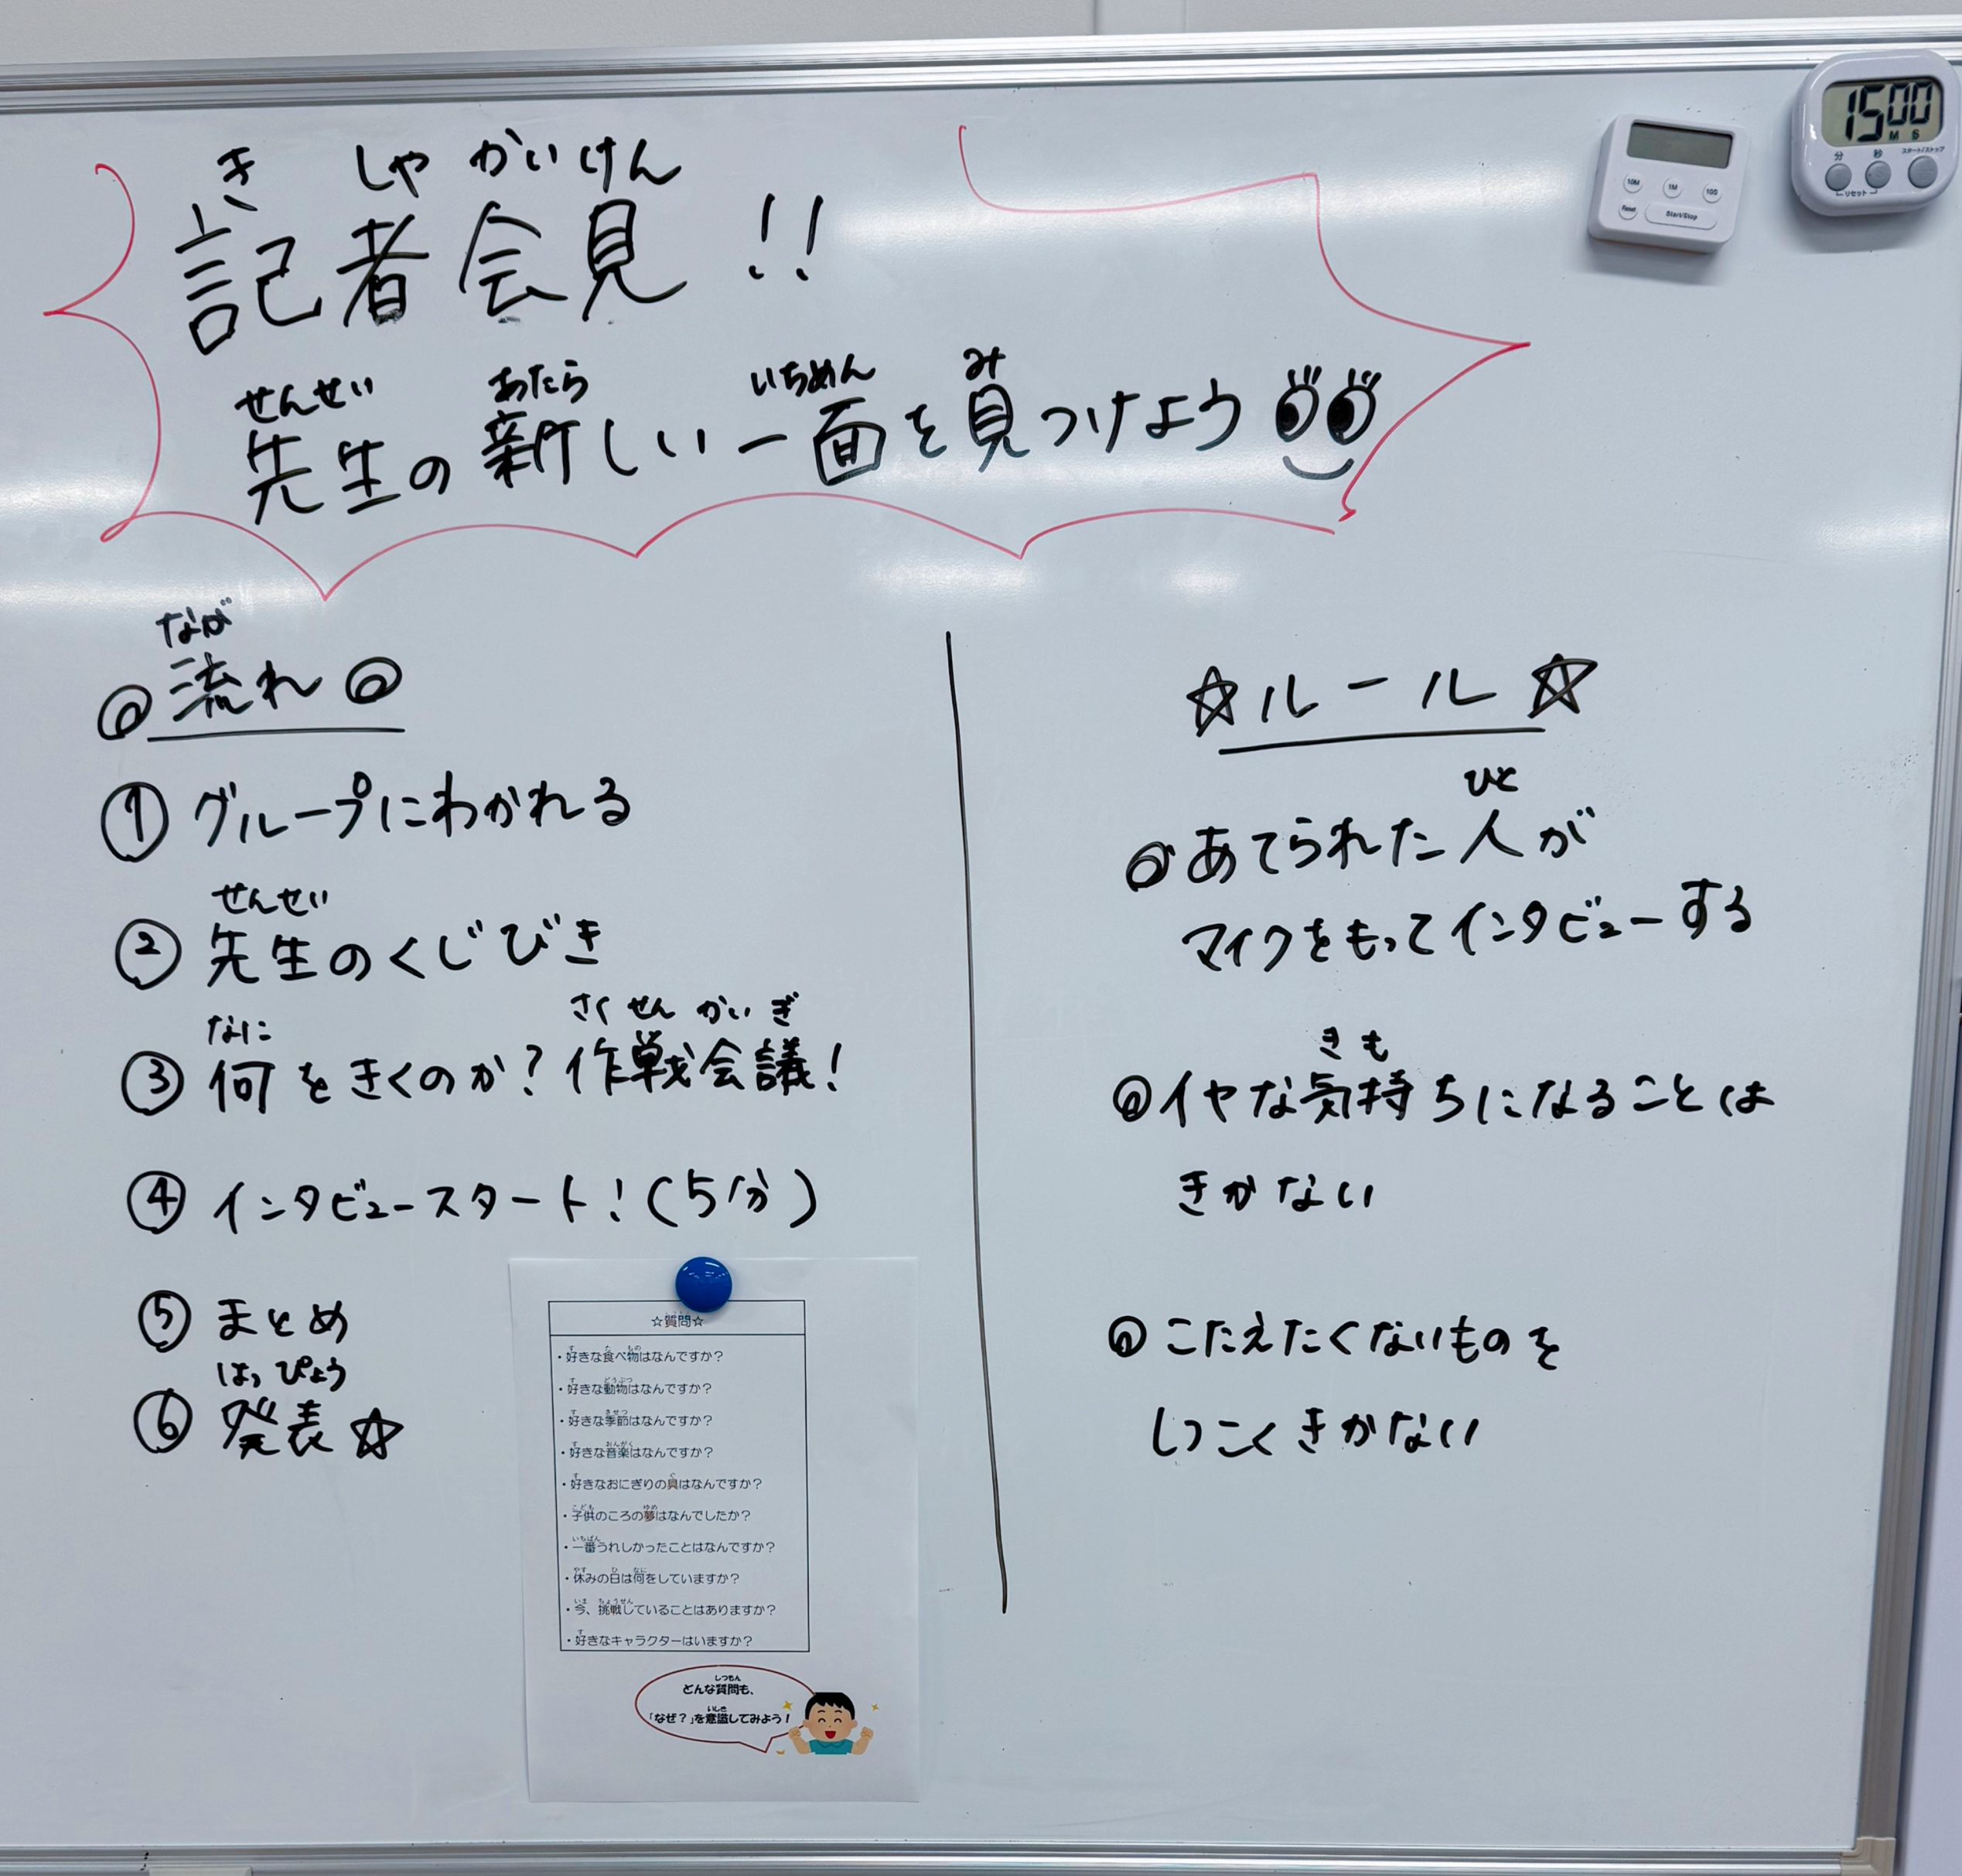 き しゃ かい けん
記者会見!!
せんせい あたら いちめん み
先生の新しい一面を見つけよう
なが
◎流れ◎
① グループにわかれる
せんせい
② 先生のくじびき
なに さくせんかいぎ
③ 何をきくのか?作戦会議!
④ インタビュースタート!(5分)
⑤ まとめ
はっぴょう
⑥ 発表☆
☆ルール☆
ひと
◎あてられた人が
マイクをもってインタビューする
きも
◎イヤな気持ちになることは
きかない
◎こたえたくないものを
しつこくきかない
☆質問☆
す た もの
・好きな食べ物はなんですか?
す どうぶつ
・好きな動物はなんですか?
す きせつ
・好きな季節はなんですか?
す おんがく
・好きな音楽はなんですか?
す ぐ
・好きなおにぎりの具はなんですか?
こども ゆめ
・子供のころの夢はなんでしたか?
いちばん
・一番うれしかったことはなんですか?
やす ひ なに
・休みの日は何をしていますか?
いま ちょうせん
・今、挑戦していることはありますか?
す
・好きなキャラクターはいますか?
しつもん
どんな質問も、
いしき
「なぜ?」を意識してみよう!
10M 1M 10S
Reset Start/Stop
1500
M S
分 秒 スタート/ストップ
リセット